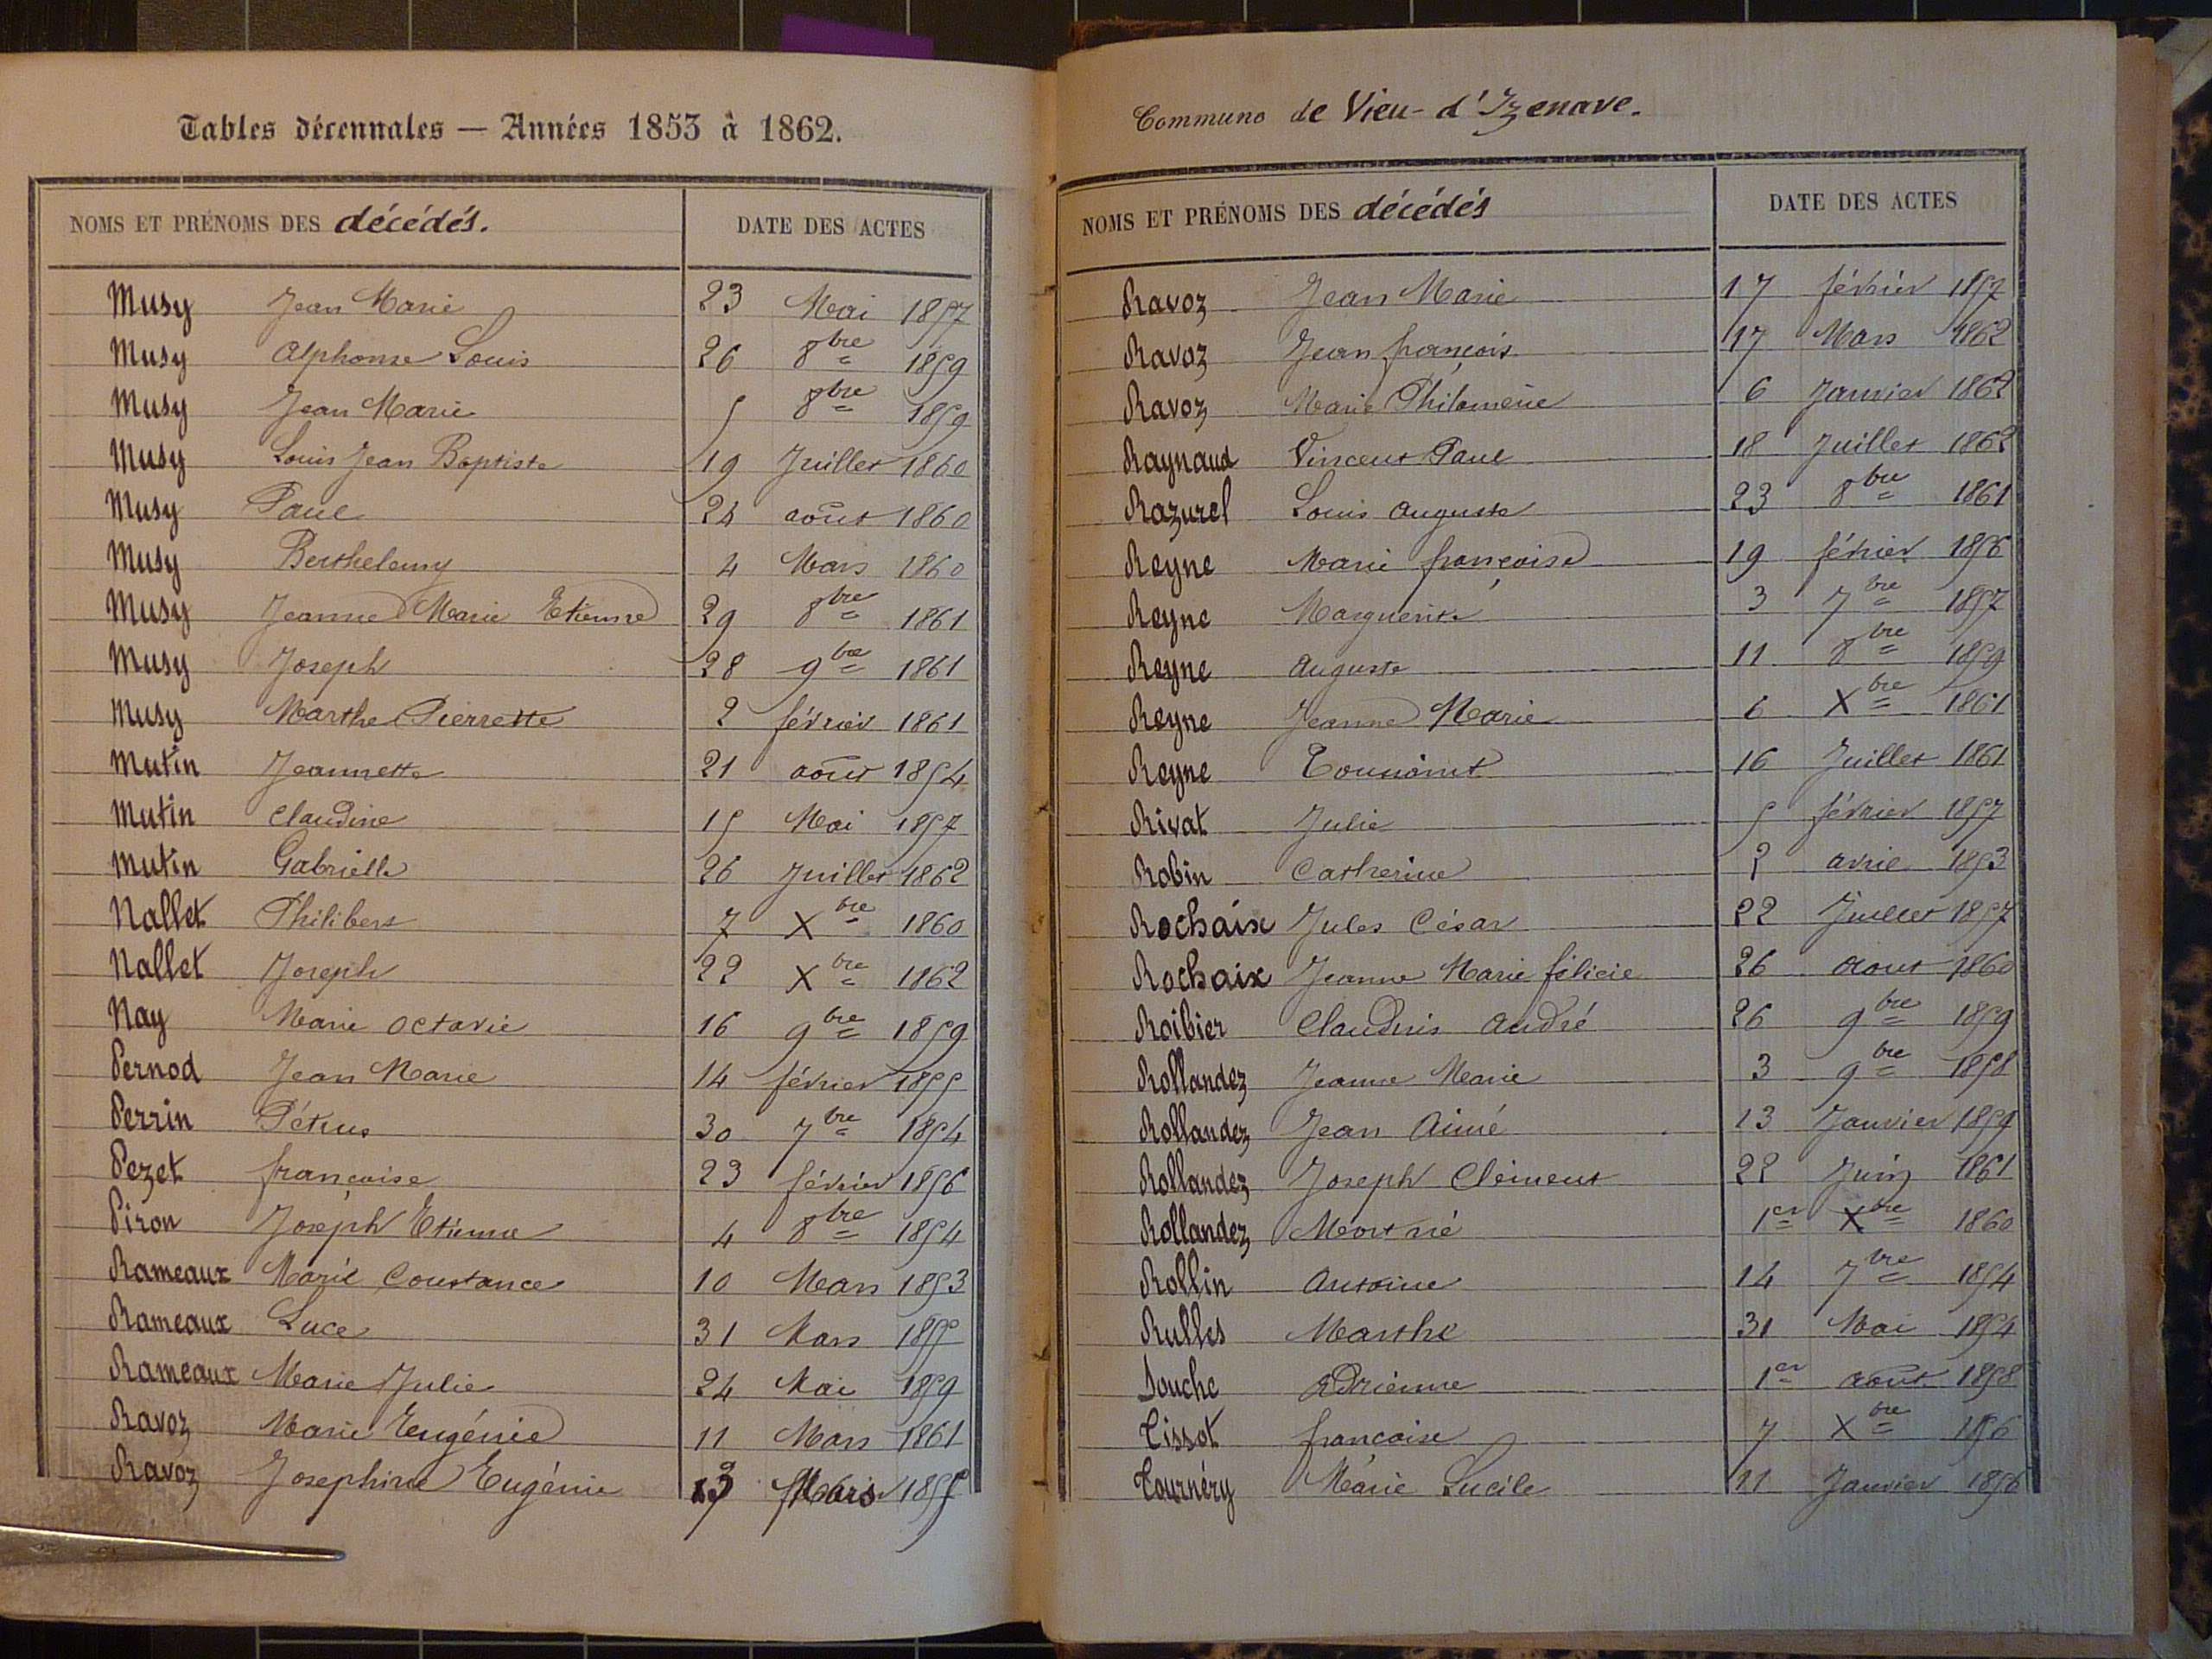 Tables décennales — Années 1853 à 1862.
NOMS ET PRÉNOMS DES décédés. DATE DES ACTES
Musy Jean Marie 23 Mai 1857
Musy Alphonse Louis 26 8bre 1859
Musy Jean Marie 5 8bre 1859
Musy Louis Jean Baptiste 19 Juillet 1860
Musy Paul 24 août 1860
Musy Berthelemy 4 Mars 1860
Musy Jeanne Marie Etienne 29 8bre 1861
Musy Joseph 28 9bre 1861
Musy Marthe Pierrette 2 février 1861
Mutin Jeannette 21 août 1854
Mutin Claudine 15 Mai 1857
Mutin Gabrielle 26 Juillet 1862
Nallet Philibert 7 Xbre 1860
Nallet Joseph 22 Xbre 1862
Nay Marie Octavie 16 9bre 1859
Pernod Jean Marie 14 février 1855
Perrin Pétrus 30 7bre 1854
Pezet françoise 23 février 1856
Piron Joseph Etienne 4 8bre 1854
Rameaux Marie Constance 10 Mars 1853
Rameaux Luce 31 Mars 1855
Rameaux Marie Julie 24 Mai 1859
Ravoz Marie Eugénie 11 Mars 1861
Ravoz Josephine Eugénie Mars 1855
Commune de Vieu-d'Izenave.
NOMS ET PRÉNOMS DES décédés DATE DES ACTES
Ravoz Jean Marie 17 février 1857
Ravoz Jean françois 17 Mars 1862
Ravoz Marie Philomène 6 Janvier 1862
Raynaud Vincent Paul 18 Juillet 1862
Razurel Louis Auguste 23 8bre 1861
Reyne Marie françoise 19 février 1856
Reyne Marguerite 3 7bre 1857
Reyne Auguste 11 8bre 1859
Reyne Jeanne Marie 6 Xbre 1861
Reyne 16 Juillet 1861
Rivat Julie 5 février 1857
Robin Catherine 2 avril 1853
Rochaix Jules César 22 Juillet 1857
Rochaix Jeanne Marie félicie 26 aout 1860
Roibier Claudius André 26 9bre 1859
Rollandez Jeanne Marie 3 9bre 1858
Rollandez Jean Aimé 13 Janvier 1859
Rollandez Joseph Clément 22 Juin 1861
Rollandez Mort né 1er Xbre 1860
Rollin Antoine 14 7bre 1854
Rulles Marthe 31 Mai 1854
Souche Adrienne 1er août 1858
Tissot francoise 7 Xbre 1856
Tournéry Marie Lucile 11 Janvier 1856